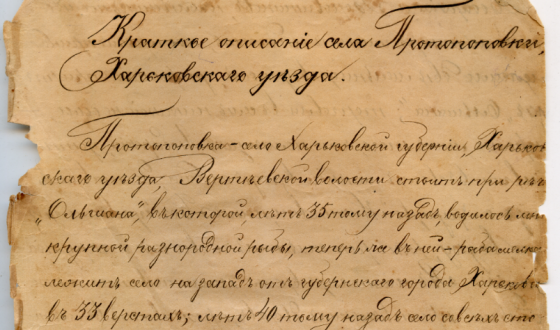 Краткое описаніе села Протопоповки,
Харьковскаго уѣзда.
Протопоповка – село Харьковской губерніи, Харьков
скаго уѣзда, волости стоитъ при рѣч
„Ольшана", въ которой лѣтъ 35 тому назадъ, водилось мн
крупной разнородной рыбы, теперь въ ней – рыба
лежитъ село на западъ отъ губернскаго города Харьков
въ 33 верстахъ; лѣтъ 40 тому назадъ село совсѣмъ сто